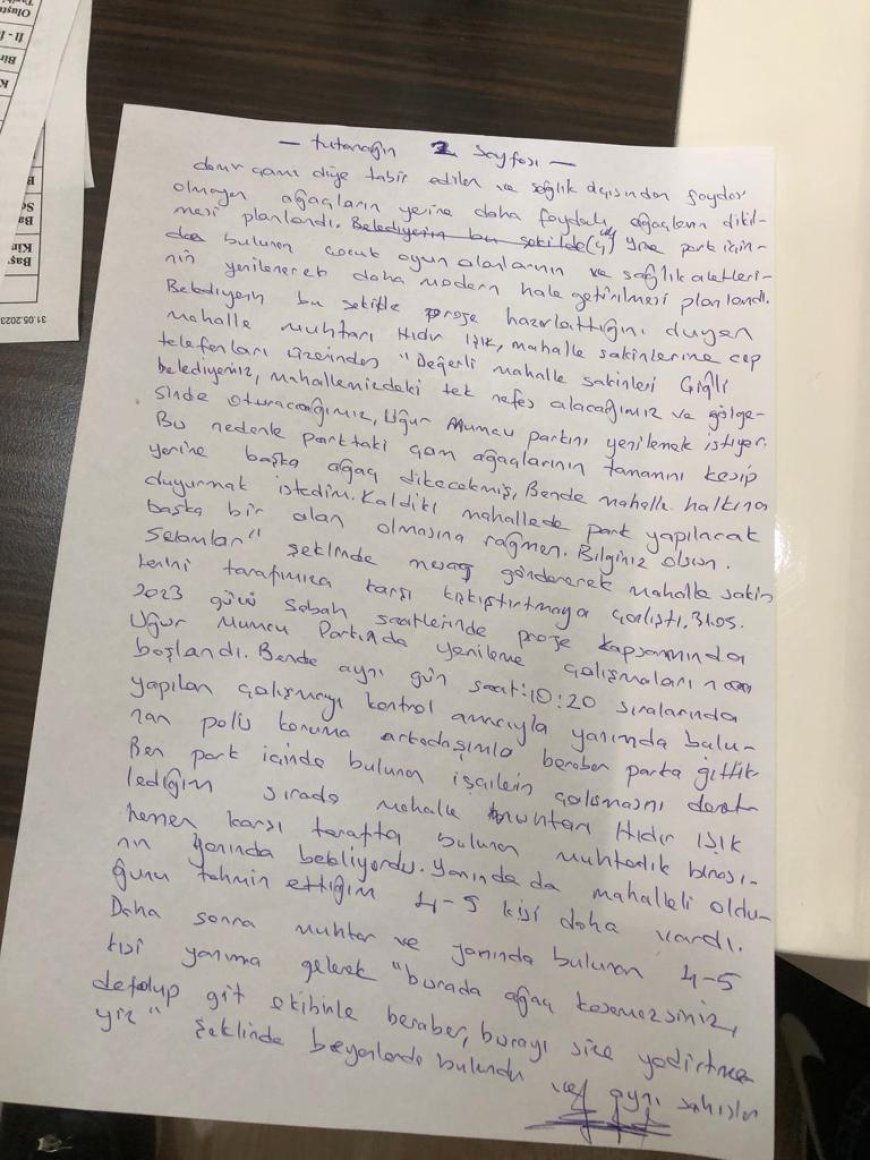 — tutanağın 2 sayfası —
demir çamı diye tabir edilen ve sağlık açısından faydası
olmayan ağaçların yerine daha faydalı ağaçların dikil-
mesi planlandı. Belediyenin bu şekilde (4) Yine park için-
de bulunan çocuk oyun alanlarının ve sağlık aletleri-
nin yenilenerek daha modern hale getirilmesi planlandı.
Belediyenin bu şekilde proje hazırlattığını duyan
mahalle muhtarı Hıdır Işık, mahalle sakinlerine cep
telefonları üzerinden "Değerli mahalle sakinleri Çiğli
belediyemiz, mahallemizdeki tek nefes alacağımız ve gölge-
sinde oturacağımız, Uğur Mumcu parkını yenilemek istiyor.
Bu nedenle parktaki çam ağaçlarının tamamını kesip
yerine başka ağaç dikecekmiş, Bende mahalle halkına
duyurmak istedim. Kaldıki mahallede park yapılacak
başka bir alan olmasına rağmen. Bilginiz olsun.
Selamlar" şeklinde mesaj göndererek mahalle sakin
lerini tarafımıza karşı kışkırtmaya çalıştı. 31.05.
2023 günü sabah saatlerinde proje kapsamında
Uğur Mumcu Parkında yenileme çalışmaları
başlandı. Bende aynı gün saat: 10:20 sıralarında
yapılan çalışmayı kontrol amacıyla yanımda bulu-
nan polis koruma arkadaşımla beraber parka gittik
Ben park içinde bulunan işçilerin çalışmasını denet-
lediğim sırada mahalle muhtarı Hıdır Işık
hemen karşı tarafta bulunan muhtarlık binası-
nın yanında bekliyordu. Yanında da mahalleli oldu-
ğunu tahmin ettiğim 4-5 kişi daha vardı.
Daha sonra muhtar ve yanında bulunan 4-5
kişi yanıma gelerek "burada ağaç kesemezsiniz,
defolup git ekibinle beraber, burayı size yıktırtma
yız" şeklinde beyanlarda bulundu ve aynı şahıslar
31.05.2023